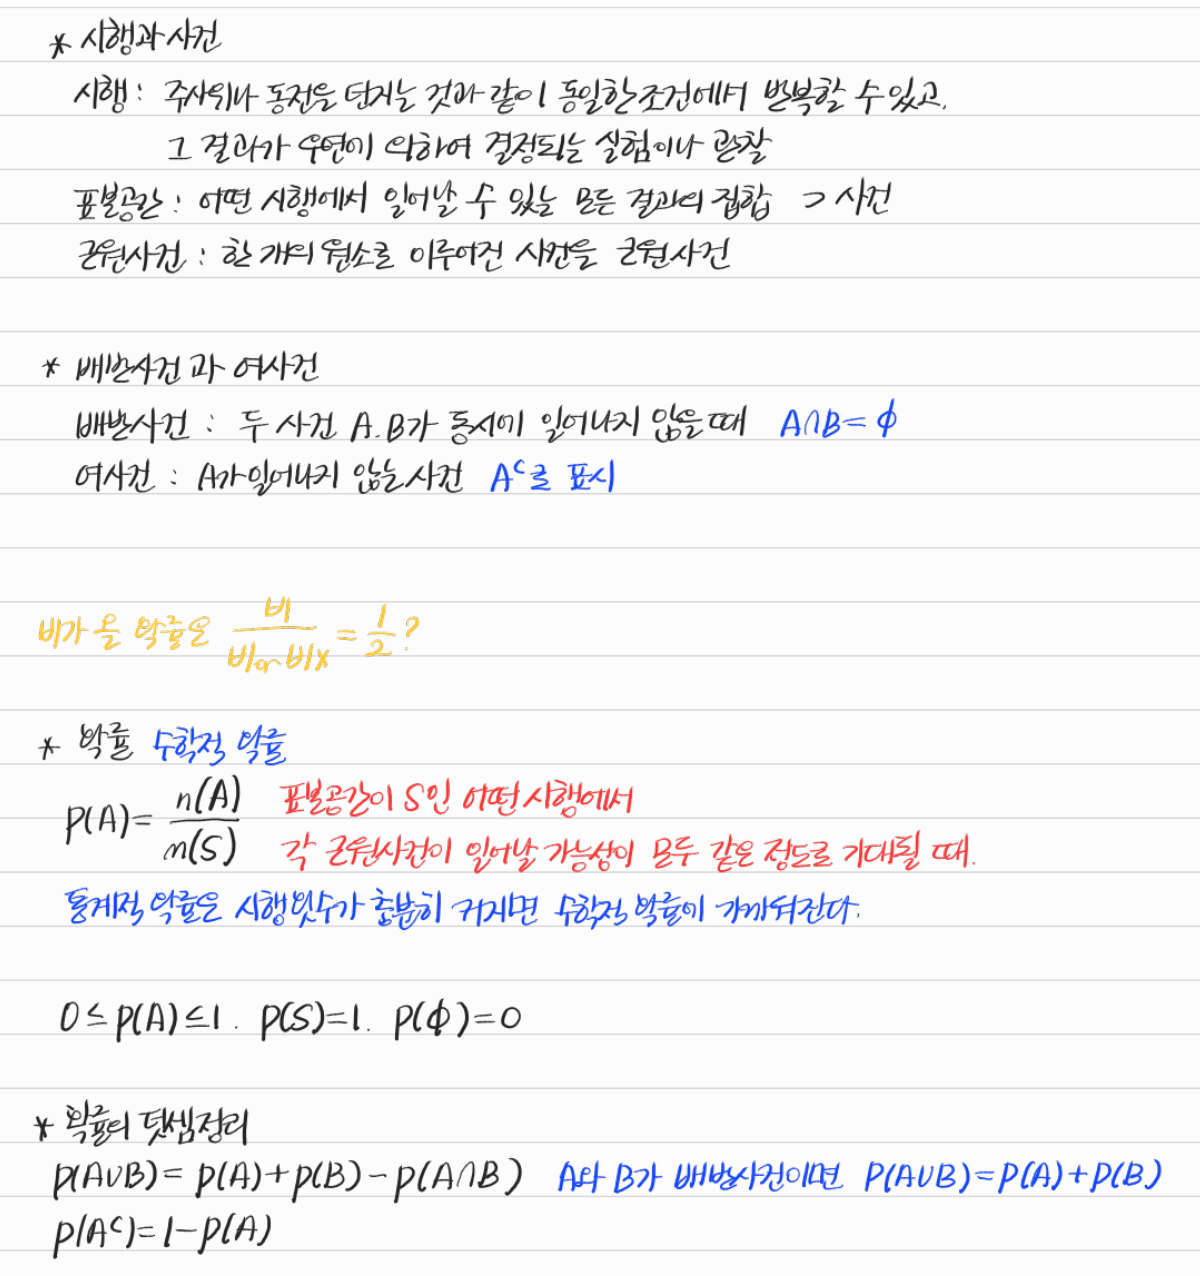 * 시행과 사건
시행 : 주사위나 동전을 던지는 것과 같이 동일한 조건에서 반복할 수 있고,
그 결과가 우연에 의하여 결정되는 실험이나 관찰
표본공간 : 어떤 시행에서 일어날 수 있는 모든 결과의 집합 ⊃ 사건
근원사건 : 한 개의 원소로 이루어진 사건을 근원사건
* 배반사건과 여사건
배반사건 : 두 사건 A, B가 동시에 일어나지 않을 때 A∩B = ϕ
여사건 : A가 일어나지 않는 사건 Aᶜ로 표시
비가 올 확률은 비/(비 or 비x) = 1/2 ?
* 확률 수학적 확률
P(A) = n(A)/n(S) 표본공간이 S인 어떤 시행에서
각 근원사건이 일어날 가능성이 모두 같은 정도로 기대될 때.
통계적 확률은 시행횟수가 충분히 커지면 수학적 확률에 가까워진다.
0 ≤ P(A) ≤ 1. P(S)=1. P(ϕ)=0
* 확률의 덧셈정리
P(A∪B) = P(A)+P(B)-P(A∩B) A와 B가 배반사건이면 P(A∪B)=P(A)+P(B)
P(Aᶜ)=1-P(A)